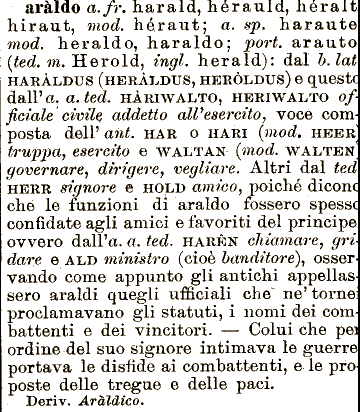 aràldo a. fr. harald, hérauld, héralt
hiraut, mod. héraut; a. sp. haraute
mod. heraldo, haraldo; port. arauto
(ted. m. Herold, ingl. herald): dal b. lat
HARÀLDUS (HERÀLDUS, HERÒLDUS) e questo
dall'a. a. ted. HÀRIWALTO, HERIWALTO of-
ficiale civile addetto all'esercito, voce com-
posta dell'ant. HAR o HARI (mod. HEER
truppa, esercito e WALTAN (mod. WALTEN
governare, dirigere, vegliare. Altri dal ted
HERR signore e HOLD amico, poiché dicono
che le funzioni di araldo fossero spesso
confidate agli amici e favoriti del principe
ovvero dall'a. a. ted. HARÊN chiamare, gri-
dare e ALD ministro (cioè banditore), osser-
vando come appunto gli antichi appellas-
sero araldi quegli ufficiali che ne' tornei
proclamavano gli statuti, i nomi dei com-
battenti e dei vincitori. — Colui che per
ordine del suo signore intimava le guerre
portava le disfide ai combattenti, e le pro-
poste delle tregue e delle paci.
Deriv. Aràldico.